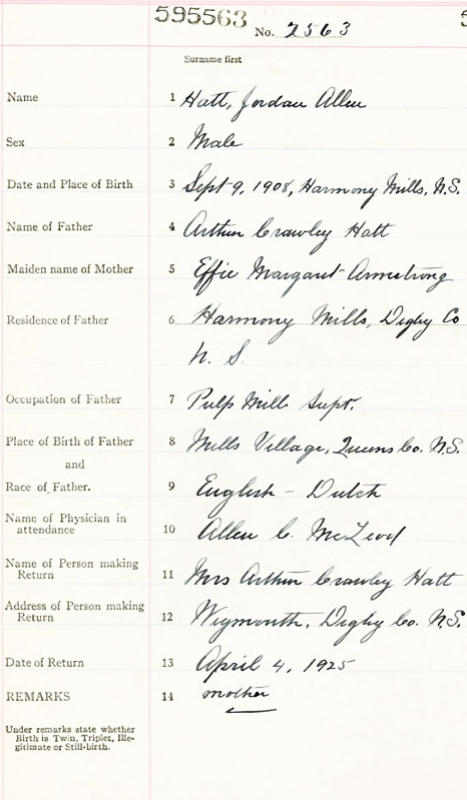 595563 No. 2563
Surname first
Name 1 Hatt, Jordan Allen
Sex 2 Male
Date and Place of Birth 3 Sept 9, 1908, Harmony Mills, N.S.
Name of Father 4 Arthur Crawley Hatt
Maiden name of Mother 5 Effie Margaret Armstrong
Residence of Father 6 Harmony Mills, Digby Co
N. S.
Occupation of Father 7 Pulp Mill Supt.
Place of Birth of Father 8 Mills Village, Queens Co. N.S.
and
Race of Father. 9 English - Dutch
Name of Physician in
attendance 10 Allen C. McLeod
Name of Person making
Return 11 Mrs Arthur Crawley Hatt
Address of Person making
Return 12 Weymouth, Digby Co. N.S.
Date of Return 13 April 4, 1925
REMARKS 14 mother
Under remarks state whether
Birth is Twin, Triplet, Ille-
gitimate or Still-birth.